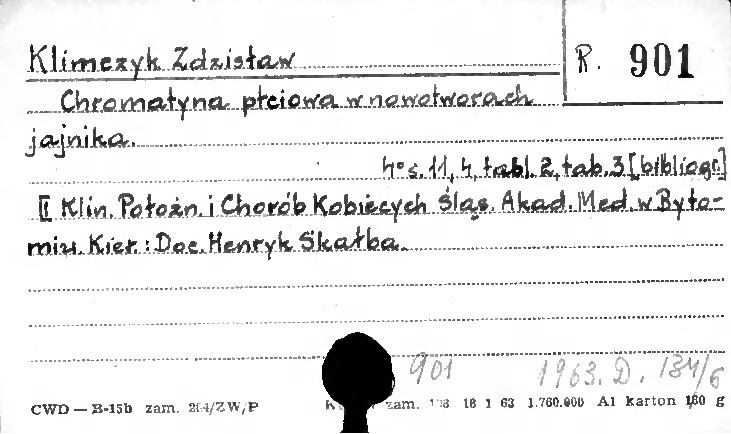 Klimczyk Zdzisław
R. 901
Chromatyna płciowa w nowotworach
jajnika.
4° s. 11, 4, tabl. 2, tab. 3 [bibliogr.]
II Klin. Położn. i Chorób Kobiecych Śląs. Akad. Med. w Byto-
miu. Kier.: Doc. Henryk Skałba.
901 1963. D. 184/6
CWD — B-15b zam. 204/ZW/P zam. 18 1 63 1.760.000 A1 karton 180 g